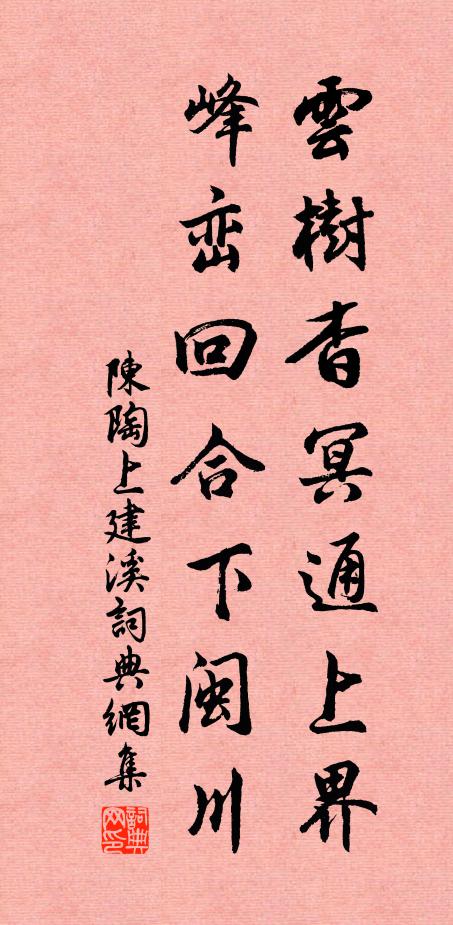 雲樹杳冥通上界
峰峦回合下闽川
陳陶上建溪詞典網集
詞典网印